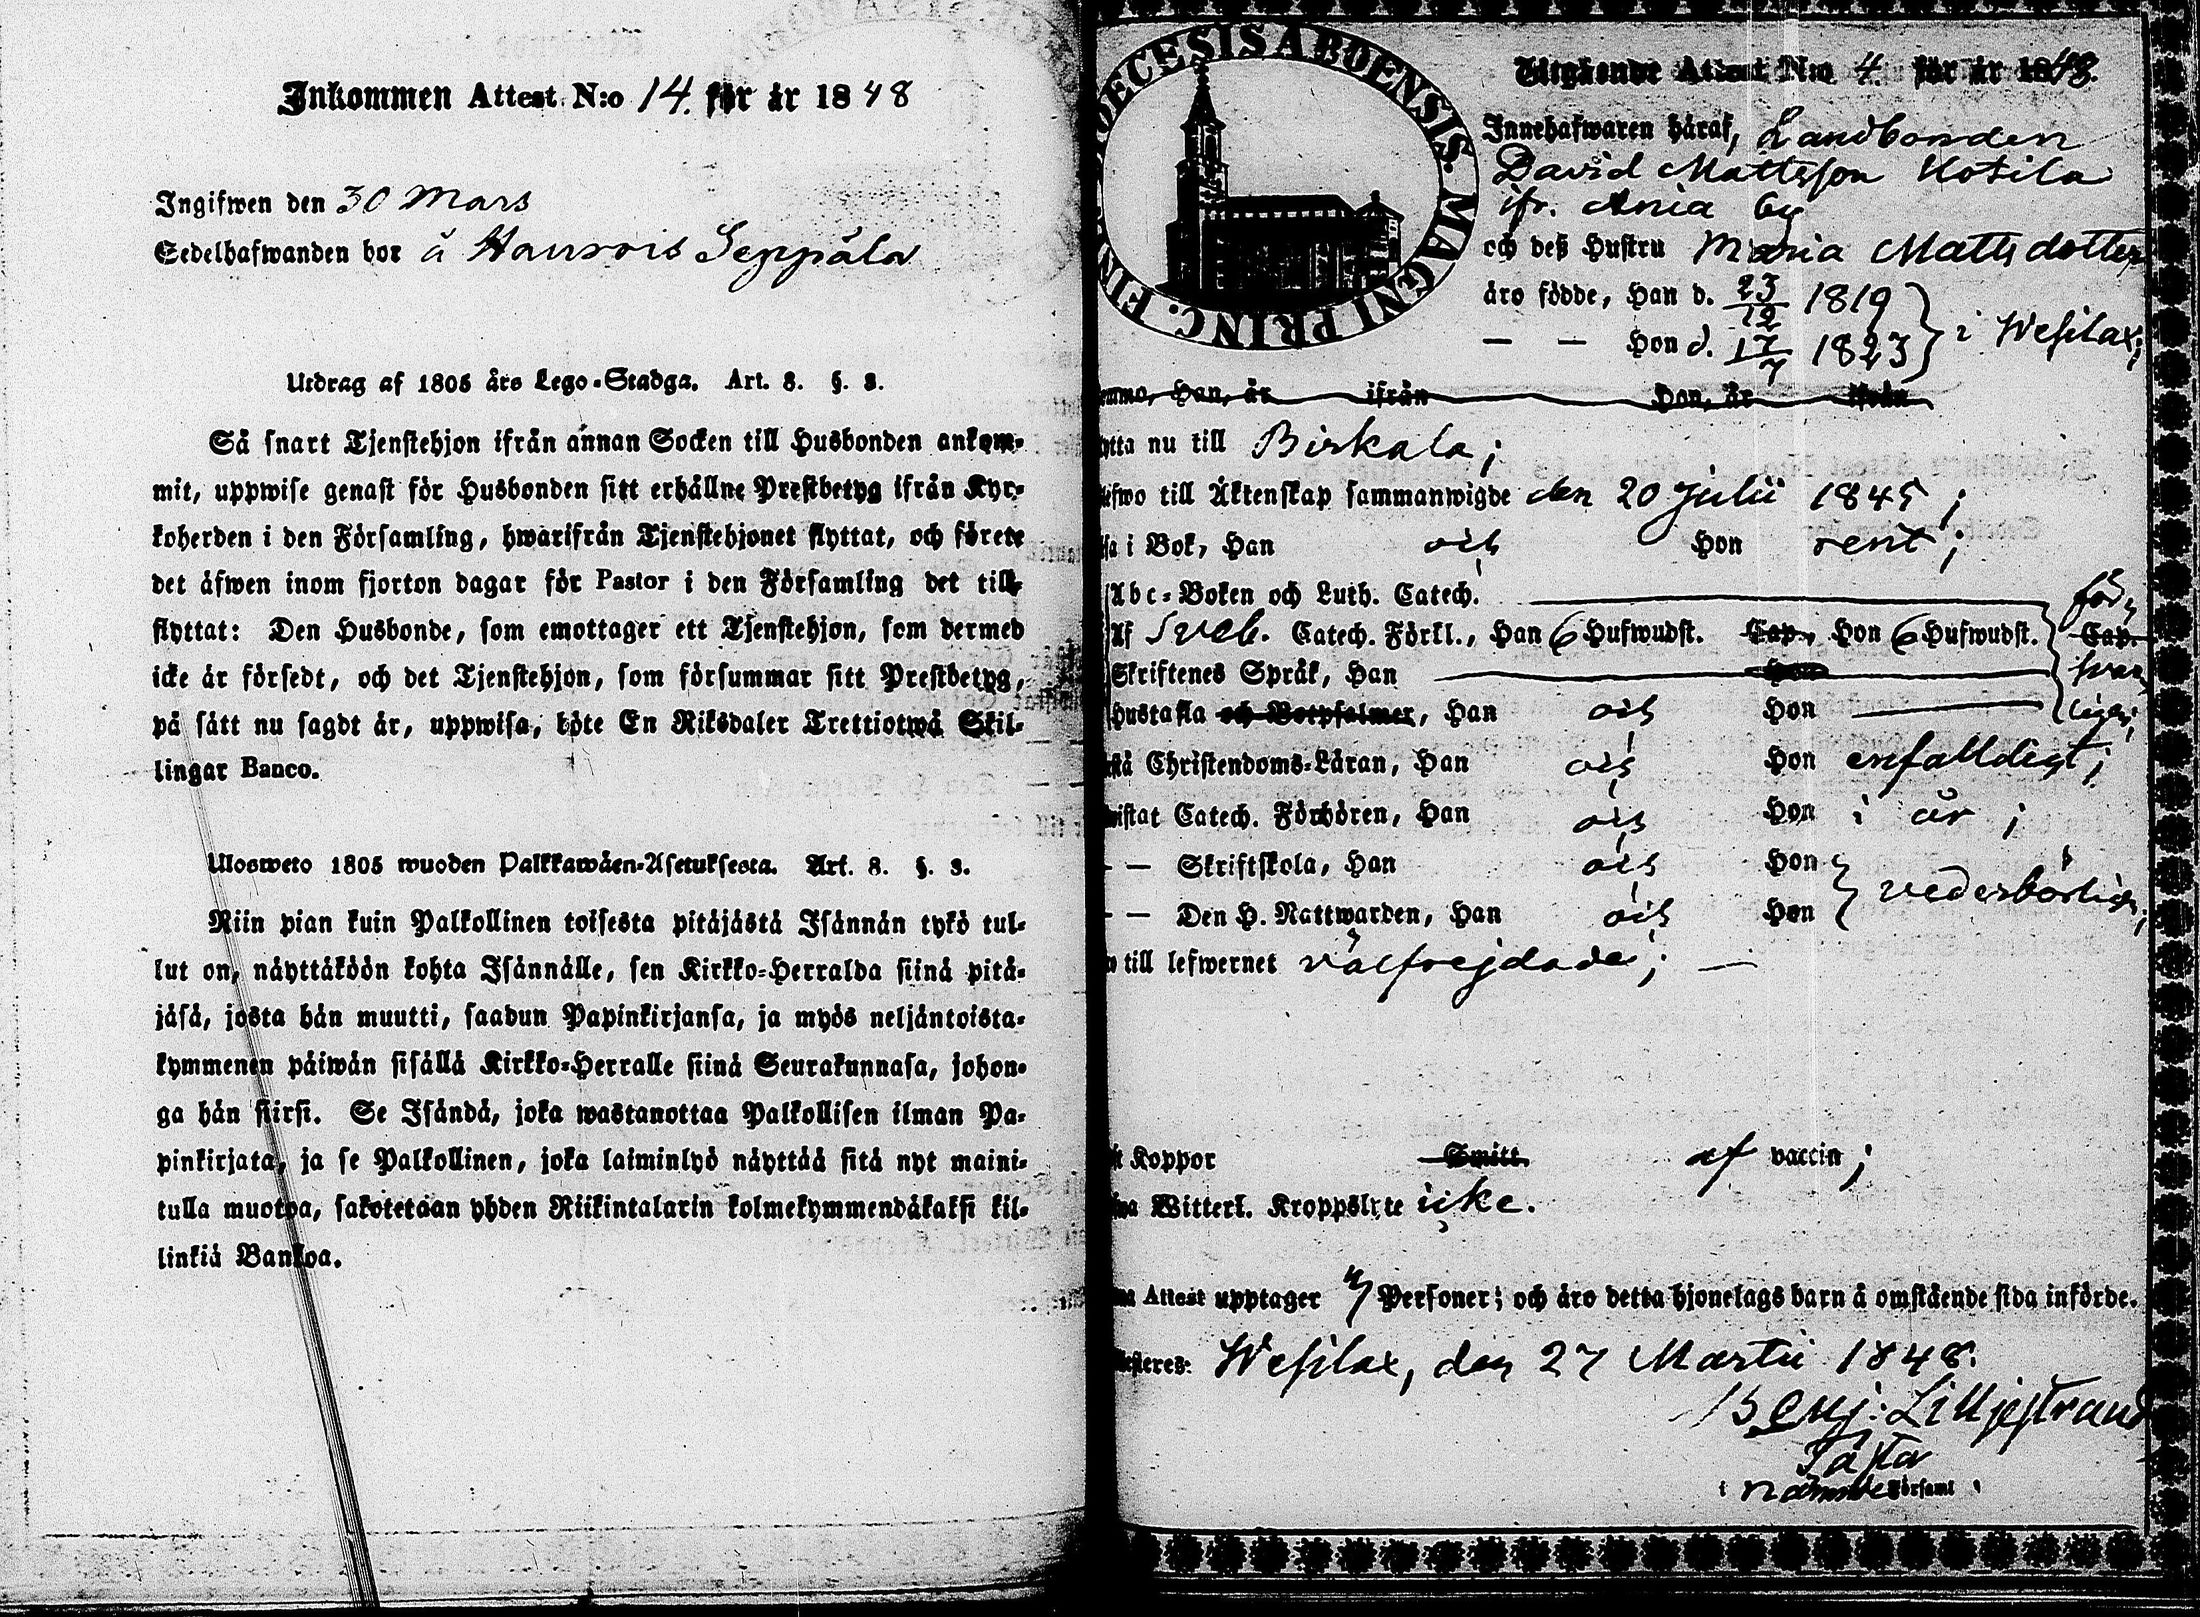 Inkommen Attest N:o 14. för år 1848
Ingifwen den 30 Mars
Sedelhafwanden bor å Haurois Seppälä
Utdrag af 1805 års Lego-Stadga. Art. 8. §. 3.
Så snart Tjenstehjon ifrån annan Socken till Husbonden ankom-
mit, uppwise genast för Husbonden sitt erhållne Prestbetyg ifrån Kyr-
koherden i den Församling, hwarifrån Tjenstehjonet flyttat, och förete
det äfwen inom fjorton dagar för Pastor i den Församling det till-
flyttat: Den Husbonde, som emottager ett Tjenstehjon, som dermed
icke är försedt, och det Tjenstehjon, som försummar sitt Prestbetyg,
på sätt nu sagdt är, uppwisa, böte En Riksdaler Trettiotwå Skil-
lingar Banco.
Ulosweto 1805 wuoden Palkkawäen-Asetuksesta. Art. 8. §. 3.
Niin pian kuin Palkollinen toisesta pitäjästä Isännän tykö tul-
lut on, näyttäköön kohta Isännälle, sen Kirkko-Herralda siinä pitä-
jäsä, josta hän muutti, saadun Papinkirjansa, ja myös neljäntoista-
kymmenen päiwän sisällä Kirkko-Herralle siinä Seurakunnasa, johon-
ga hän siirsi. Se Isändä, joka wastanottaa Palkollisen ilman Pa-
pinkirjata, ja se Palkollinen, joka laiminlyö näyttää sitä nyt maini-
tulla muotoa, sakotetaan yhden Riikintalarin kolmekymmendäkaksi kil-
linkiä Bankoa.
DIOECESIS ABOENSIS. MAGNI PRINC. FIN
Utgående Attest N:o 4 för år 1848.
Innehafwaren häraf, Landbonden
David Mattsson Uotila
ifr. Ania by
och deß Hustru Maria Mattsdotter
äro födde, Han d. 23/12 1819
— — Hon d. 17/7 1823 } i Wesilax;
emmo, Han, är ifrån Hon, är ifrån
ytta nu till Birkala;
efwo till Äktenskap sammanwigde den 20 Julii 1845;
sa i Bok, Han och Hon rent;
Abc-Boken och Luth. Catech.
Af Sveb. Catech. Förkl., Han 6 Hufwudst. Cap., Hon 6 Hufwudst. Cap.
Skriftenes Språk, Han Hon
Hustafla och Botpsalmer, Han och Hon
stå Christendoms-Läran, Han och Hon enfalldigt;
wistat Catech. Förhören, Han och Hon i år;
— — Skriftskola, Han och Hon
— — Den H. Nattwarden, Han och Hon } vederbörligen;
o till lefwernet välfrejdade; —
ft Koppor Smitt. af vaccin;
fwa Witterl. Kroppslyte icke.
na Attest upptager 4 Personer; och äro detta hjonelags barn å omstående sida införde.
testeres: Wesilax, den 27 Martii 1848.
Benj: Lilljestrand
Pastor
i nämnde Församl